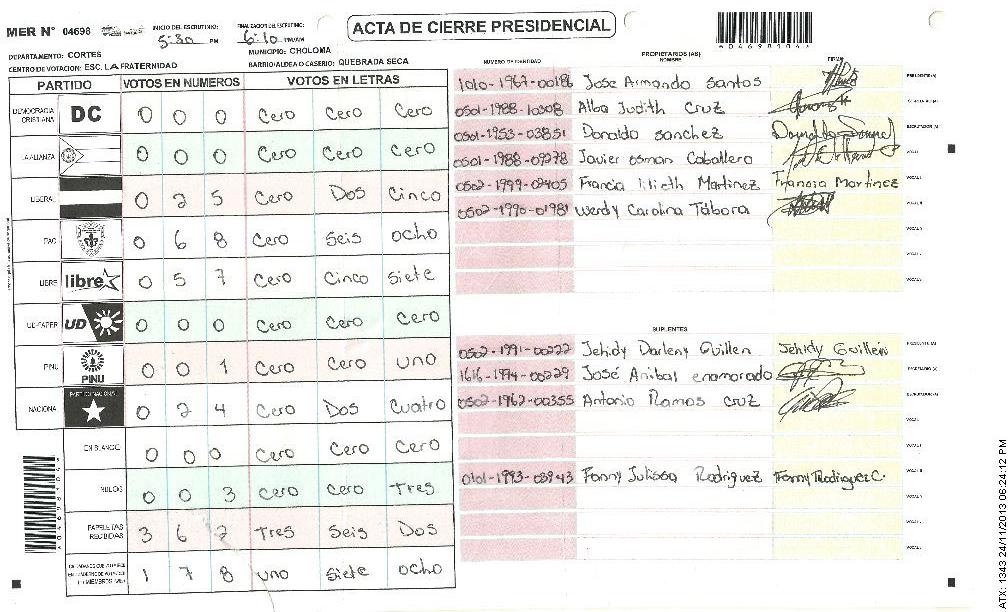 ACTA DE CIERRE PRESIDENCIAL
MER N° 04698
INICIO DEL ESCRUTINIO: 5:30 PM
FINALIZACION DEL ESCRUTINIO: 6:10 PM/AM
DEPARTAMENTO: CORTES
MUNICIPIO: CHOLOMA
CENTRO DE VOTACION: ESC. LA FRATERNIDAD
BARRIO/ALDEA O CASERIO: QUEBRADA SECA
PARTIDO VOTOS EN NUMEROS VOTOS EN LETRAS
DEMOCRACIA CRISTIANA DC 0 0 0 Cero Cero Cero
LA ALIANZA 0 0 0 Cero Cero Cero
LIBERAL 0 2 5 Cero Dos Cinco
PAC 0 6 8 Cero Seis ocho
LIBRE libre 0 5 7 Cero Cinco Siete
UD-FAPER UD 0 0 0 Cero Cero Cero
PINU PINU 0 0 1 Cero Cero uno
NACIONAL PARTIDO NACIONAL 0 2 4 Cero Dos Cuatro
EN BLANCO 0 0 0 Cero Cero Cero
NULOS 0 0 3 Cero Cero Tres
PAPELETAS RECIBIDAS 3 6 2 Tres Seis Dos
1 7 8 uno Siete ocho
PROPIETARIOS (AS)
NUMERO DE IDENTIDAD NOMBRE FIRMA
1010-1967-00186 Jose Armando Santos PRESIDENTE(A)
0501-1988-10308 Alba Judith Cruz SECRETARIO(A)
0501-1953-03851 Donaldo Sanchez ESCRUTADOR (A)
0501-1988-09278 Javier osman Caballero VOCAL I
0502-1999-02405 Francia lilieth Martinez Francia Martinez
0502-1990-01981 Werdy Carolina Tabora
SUPLENTES
0502-1991-00222 Jehidy Darleny Guillen Jehidy Guillen PRESIDENTE (A)
1616-1974-00229 José Anibal enamorado SECRETARIO (A)
0502-1962-00355 Antonio Ramos Cruz ESCRUTADOR(A)
0101-1993-03943 Fanny Julissa Rodriguez Fanny Rodriguez C.
ATX: 1343 24/11/2013 06:24:12 PM